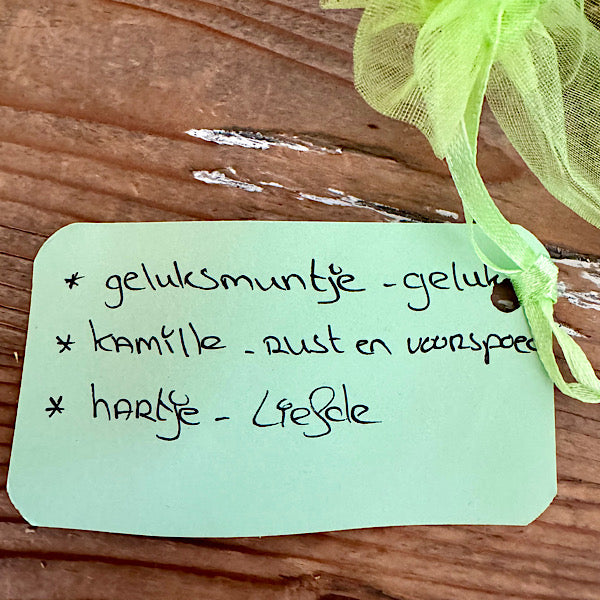 * geluksmuntje - geluk
* kamille - rust en voorspoed
* hartje - Liefde